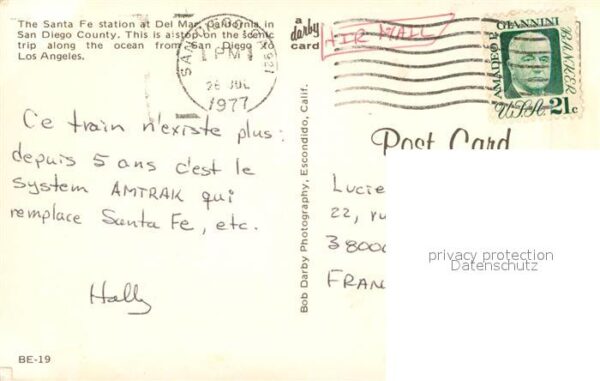 The Santa Fe station at Del Mar, California in
San Diego County. This is a stop on the scenic
trip along the ocean from San Diego to
Los Angeles.
a
darby
card
AIR MAIL
PM
26 JUL
1977
921
AMADEO P. GIANNINI
BANKER
U.S.A. 21c
Ce train n'existe plus:
depuis 5 ans c'est le
system AMTRAK qui
remplace Santa Fe, etc.
Hally
BE-19
Bob Darby Photography, Escondido, Calif.
Post Card
Lucie
22, ru
38000
FRAN
privacy protection
Datenschutz